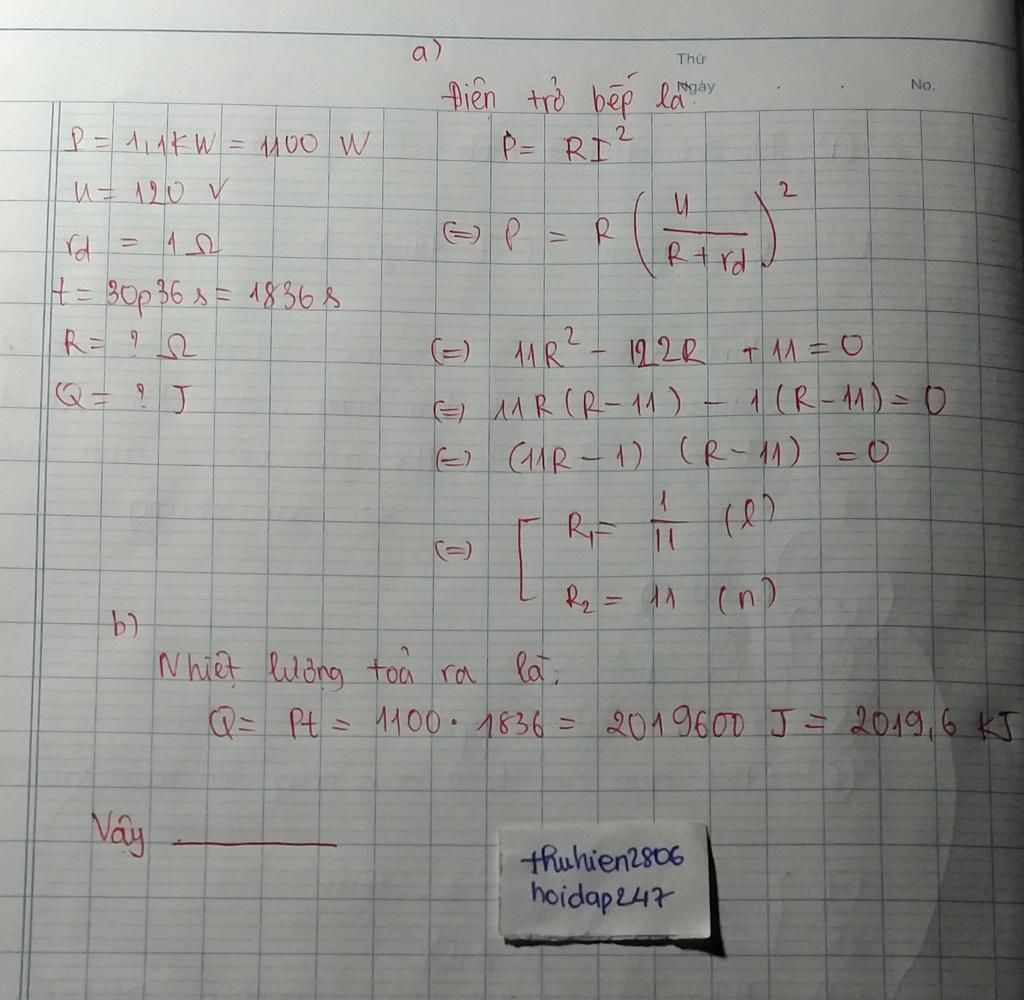 a)
Thứ
Ngày . . No.
Điện trở bếp là
P = 1,1KW = 1100 W
U = 120 V
rd = 1 Ω
t = 30p36s = 1836s
R = ? Ω
Q = ? J
P = RI²
(=) P = R (U / (R + rd))²
(=) 11R² - 122R + 11 = 0
(=) 11R (R - 11) - 1 (R - 11) = 0
(=) (11R - 1) (R - 11) = 0
(=) [ R₁ = 1/11 (l)
R₂ = 11 (n)
b)
Nhiệt lượng toả ra là:
Q = Pt = 1100 . 1836 = 2019600 J = 2019,6 KJ
Vậy
thuhien2806
hoidap247